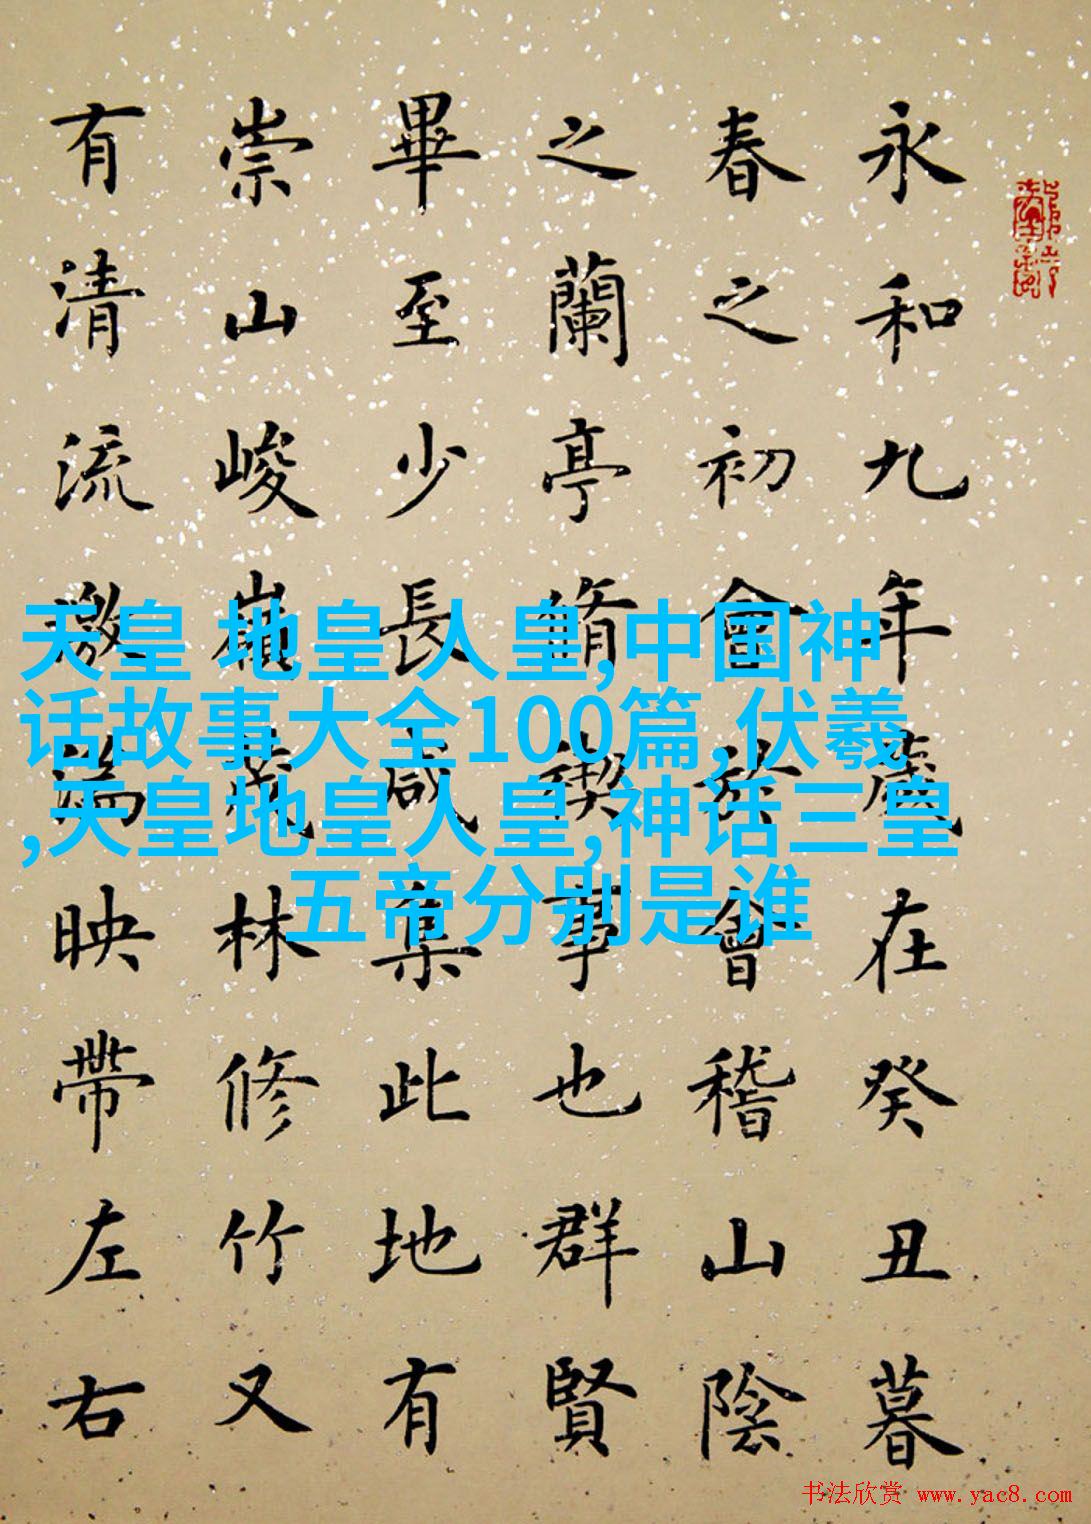 永和九年歲在癸丑暮
春之初會於會稽山陰
之蘭亭脩禊事也群賢
畢至少長咸集此地有
崇山峻嶺茂林修竹又
有清流激湍映帶左右
天皇 地皇 人皇,中国神
话故事大全100篇,伏羲
,天皇地皇人皇,神话三皇
五帝分别是谁
书法欣赏 www.yac8.com